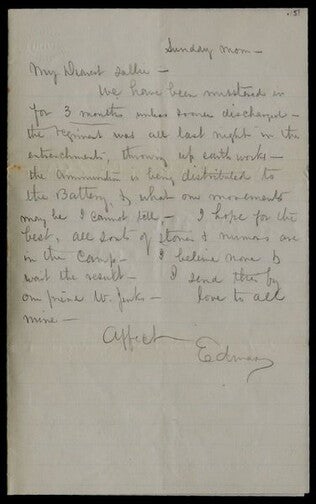 Sunday Morn -
My Dearest Sallie -
We have been mustered in
for 3 months unless sooner discharged -
the regiment was all last night in the
entrenchments, throwing up earth works -
the Ammunition is being distributed to
the Battery, & what our movements
may be I cannot tell, - I hope for the
best, all sorts of stories & rumors are
in the Camp - I believe none &
wait the result - I send this by
our friend W. Jenks - love to all
mine -
Affect